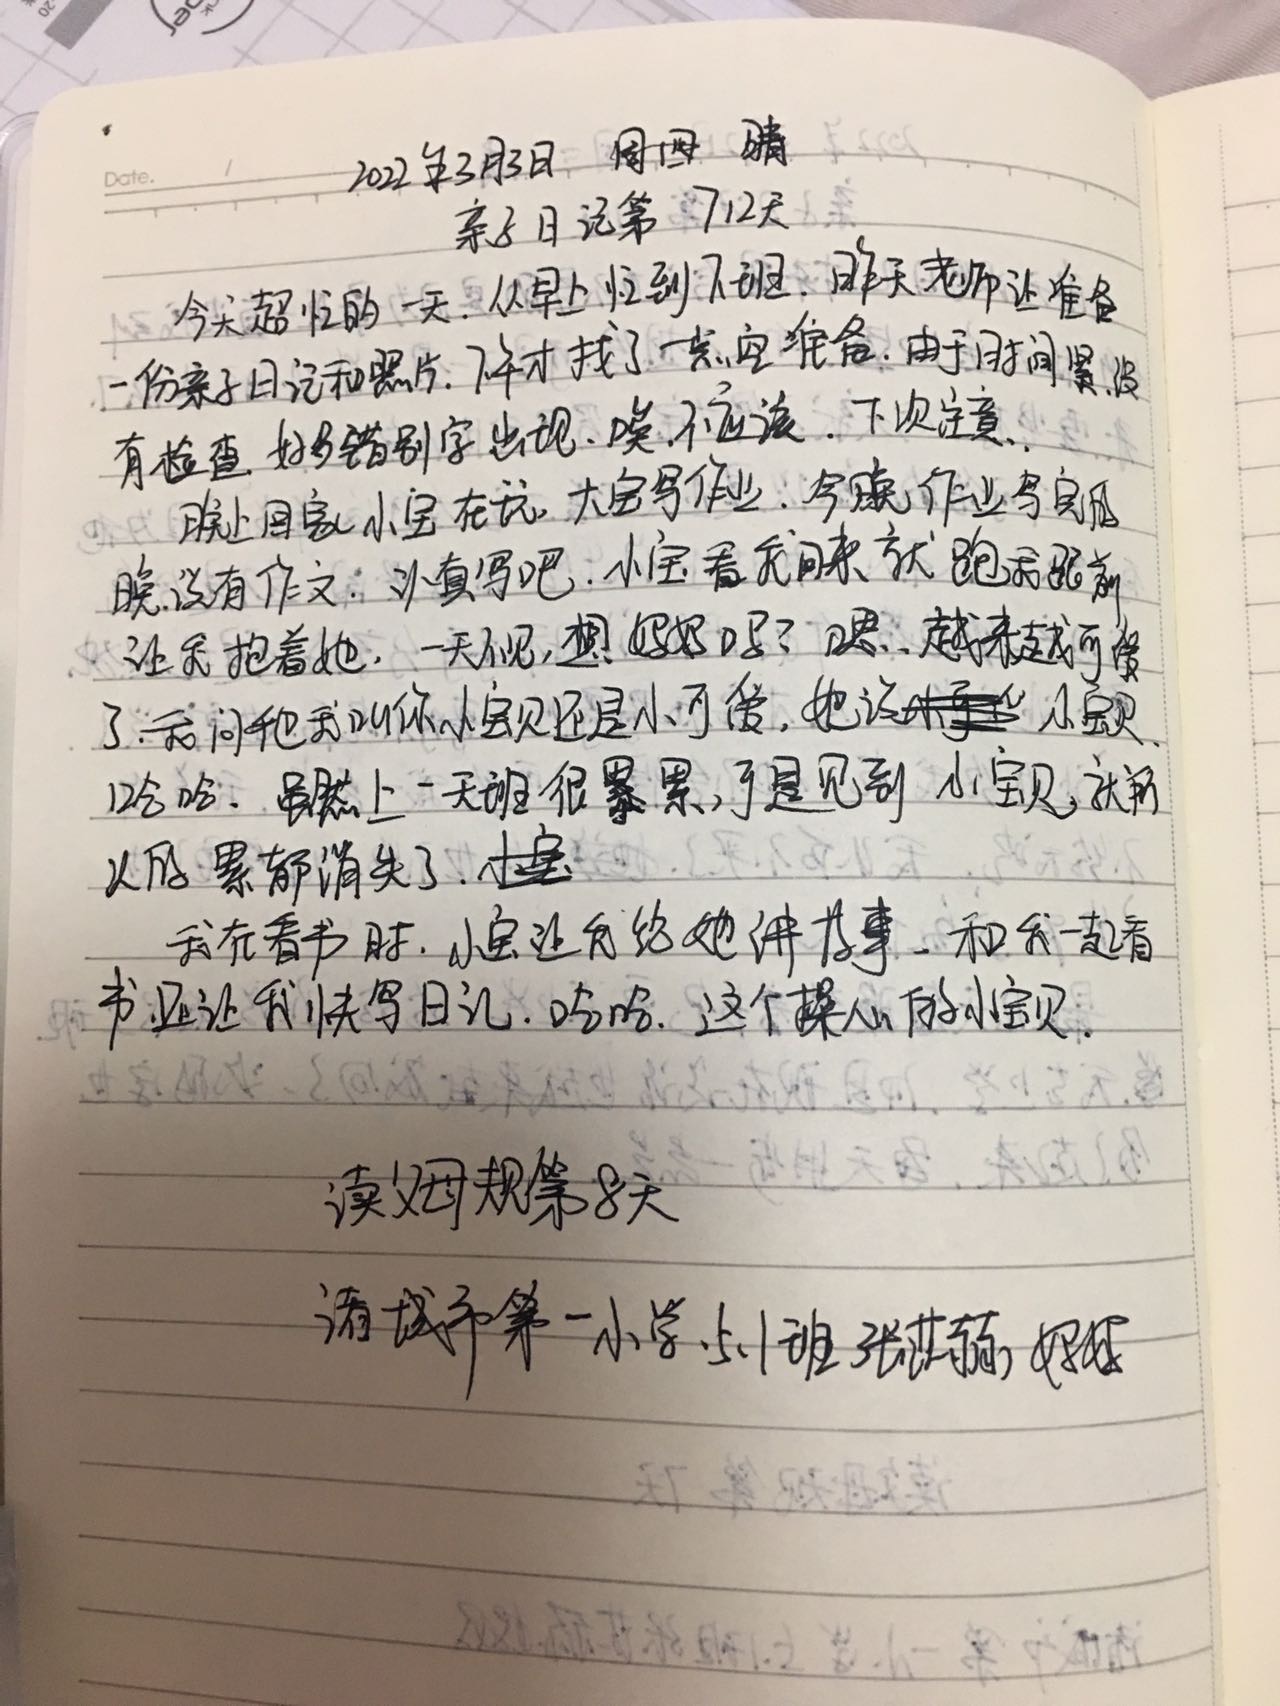 Date.
2022年3月3日 周四 晴
亲子日记第 712天
今天超忙的一天.从早上忙到下班.昨天老师让准备
一份亲子日记和照片.下午才找了一点空准备.由于时间紧.没
有检查.好多错别字出现.唉.不应该.下次注意.
晚上回家小宝在玩.大宝写作业.今晚作业写完
晚.没有作文.认真写吧.小宝看我回来就跑我跟前
让我抱着她.一天不见,想妈妈吗?嗯..越来越可爱
了.我问他我叫你小宝贝还是小可爱,她说小宝贝.
哈哈.虽然上一天班很累,可是见到小宝贝,就所
以的累都消失了.
我在看书时.小宝让我给她讲故事.和我一起看
书.还让我快写日记.哈哈.这个操心的小宝贝.
读父母规第8天
诸城市第一小学.5.1班 张 妈妈